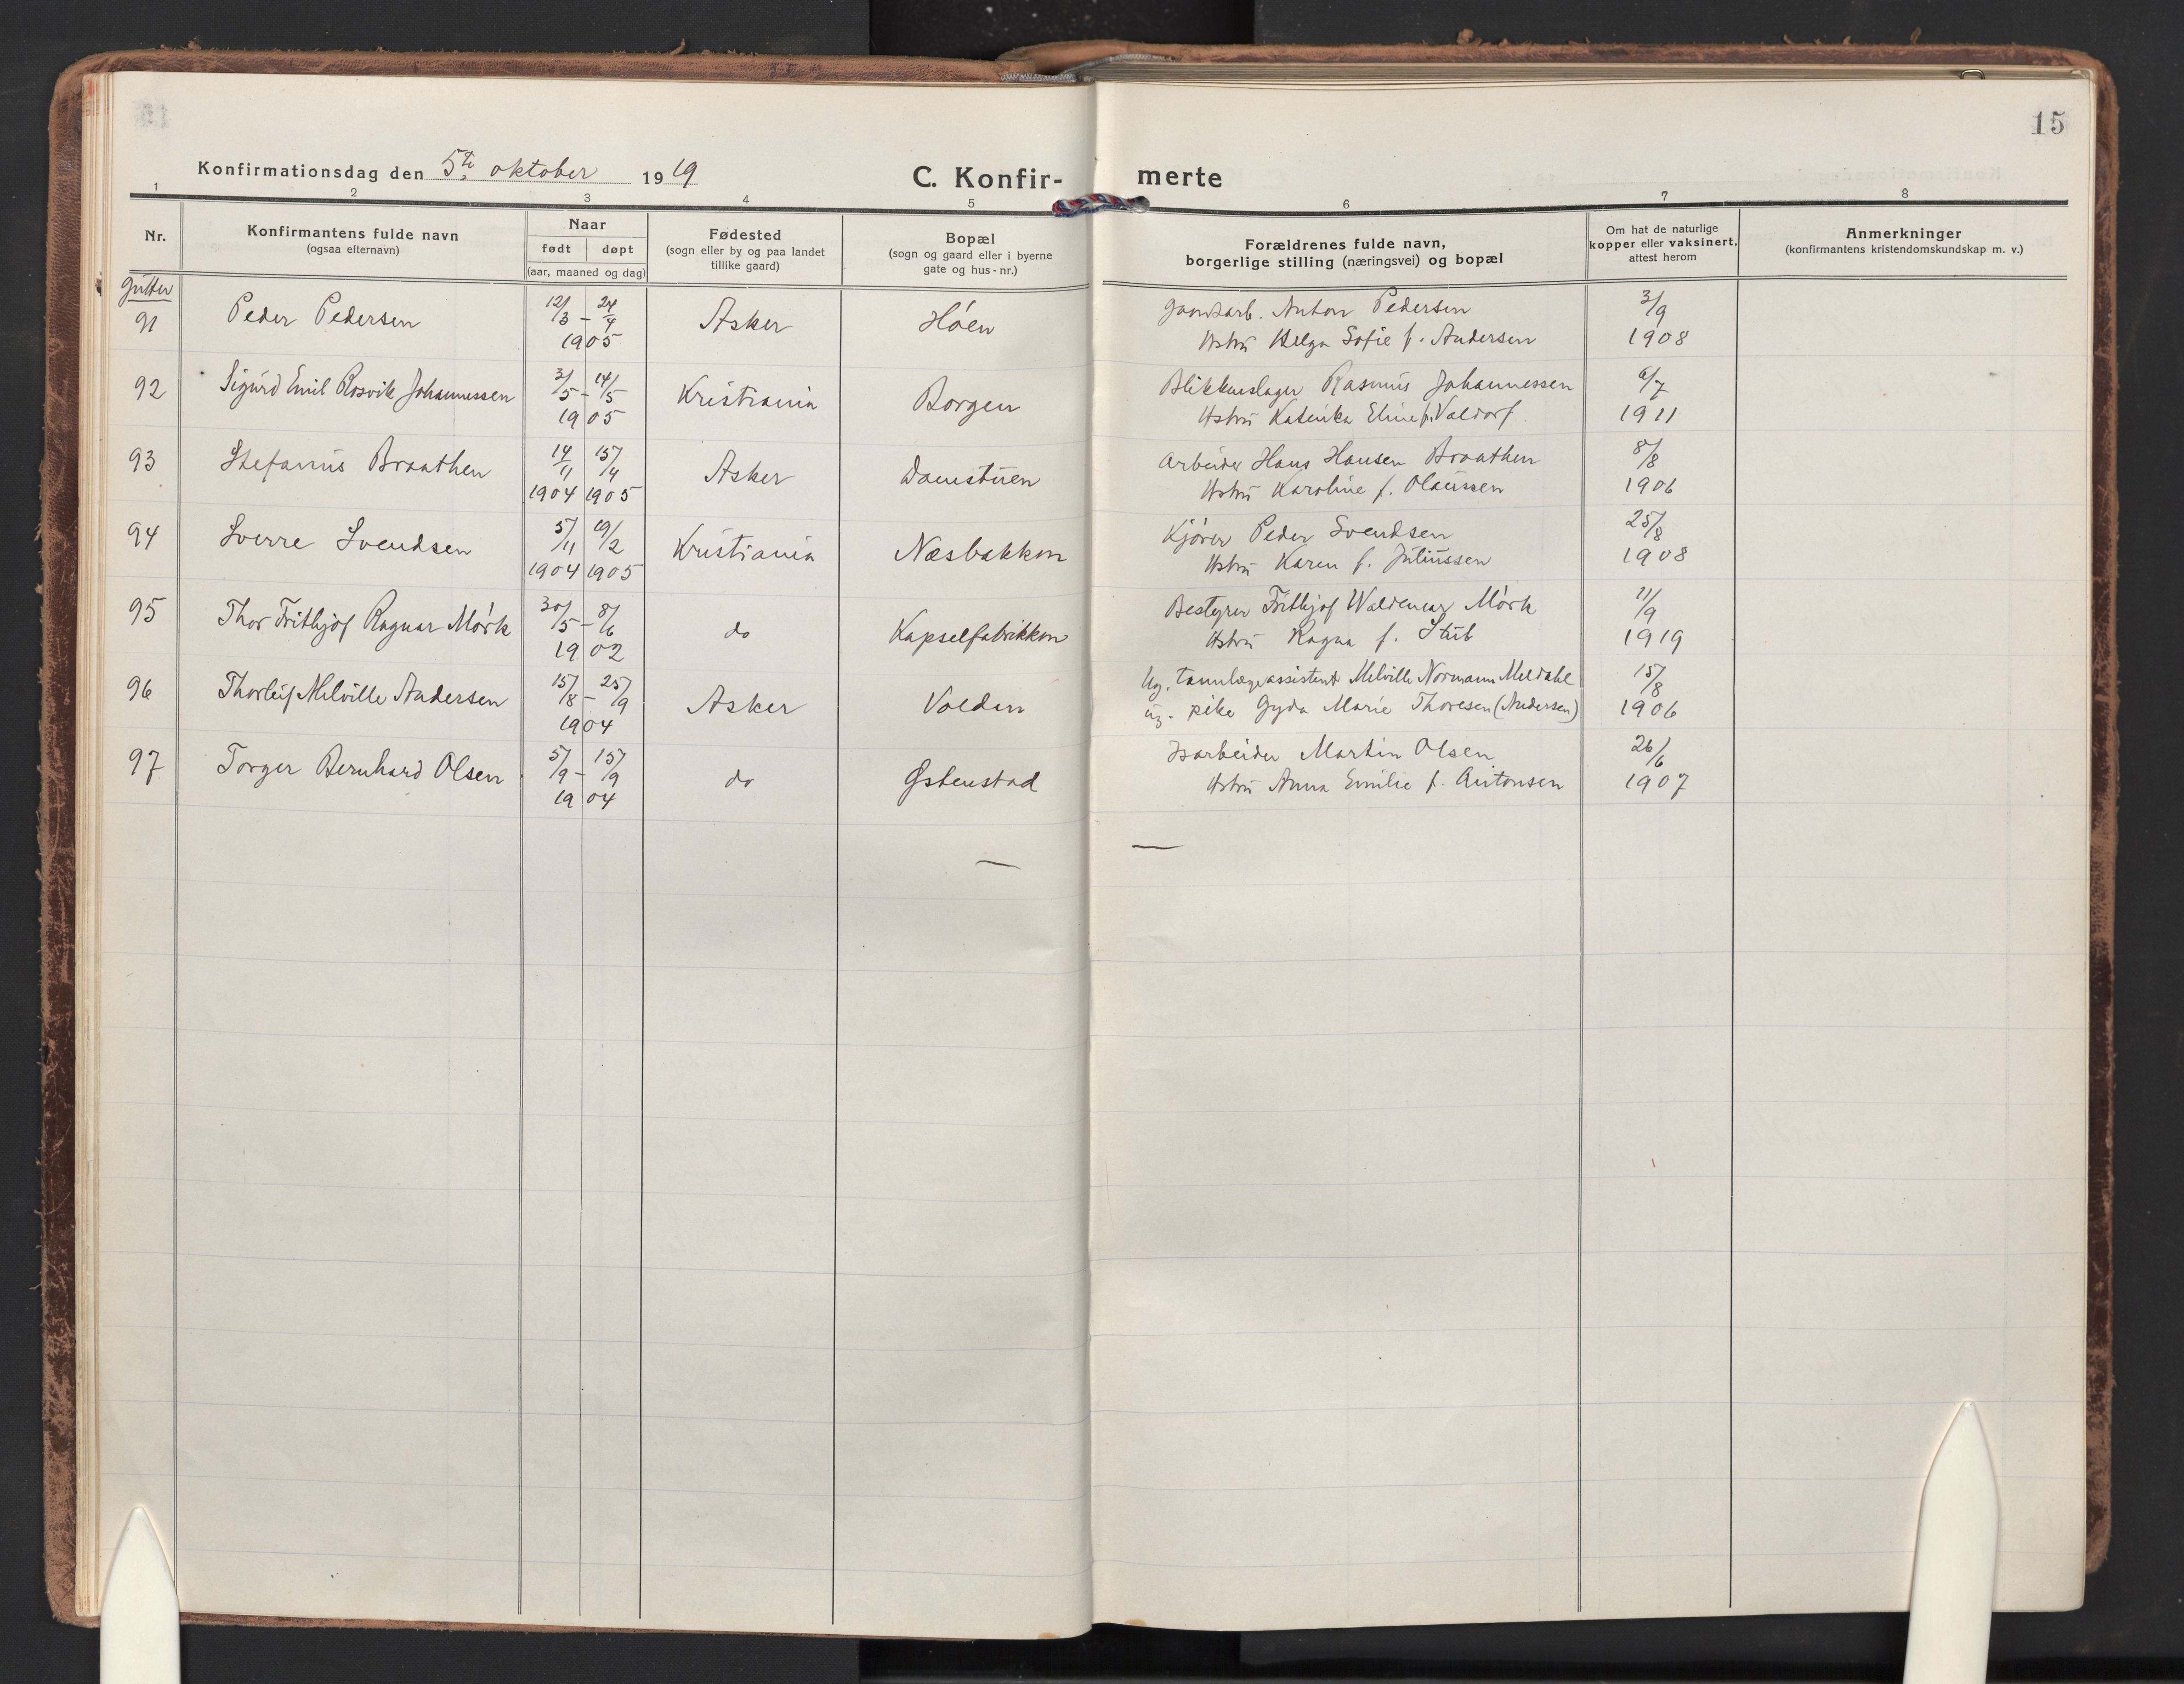 15
Konfirmationsdag den 5te oktober 1919
C. Konfir- merte
1 2 3 4 5 6 7 8
Nr.
Konfirmantens fulde navn
(ogsaa efternavn)
Naar
født døpt
(aar, maaned og dag)
Fødested
(sogn eller by og paa landet
tillike gaard)
Bopæl
(sogn og gaard eller i byerne
gate og hus-nr.)
Forældrenes fulde navn,
borgerlige stilling (næringsvei) og bopæl
Om hat de naturlige
kopper eller vaksinert,
attest herom
Anmerkninger
(konfirmantens kristendomskundskap m. v.)
Gutter
91 Peder Pedersen 12/3 - 24/4 Asker Høen Gaardsarb. Anton Pedersen 3/9
1905 Hstru Helga Sofie f. Andersen 1908
92 Sigurd Emil Rosvik Johannessen 3/5 - 14/5 Kristiania Borgen Blikkenslager Rasmus Johannessen 6/7
1905 Hstru Katinka Eline f. Valdorf 1911
93 Stefanus Braathen 14/11 15/4 Asker Damstuen Arbeider Hans Hansen Braathen 8/8
1904 1905 Hstru Karoline f. Olaussen 1906
94 Sverre Svendsen 5/11 19/2 Kristiania Næsbakken Kjører Peder Svendsen 25/8
1904 1905 Hstru Karen f. Juliussen 1908
95 Thor Frithjof Ragnar Mørk 30/5 - 8/6 do Kapselfabrikken Bestyrer Frithjof Waldemar Mørk 11/9
1902 Hstru Ragna f. Stub 1919
96 Thorleif Melville Andersen 15/8 - 25/9 Asker Volden Ug. tannlægeassistent Melville Normann Meldahl 15/8
1904 ug. pike Gyda Marie Thoresen (Andersen) 1906
97 Torger Bernhard Olsen 5/9 - 15/9 do Østenstad Isarbeider Martin Olsen 26/6
1904 Hstru Anna Emilie f. Antonsen 1907